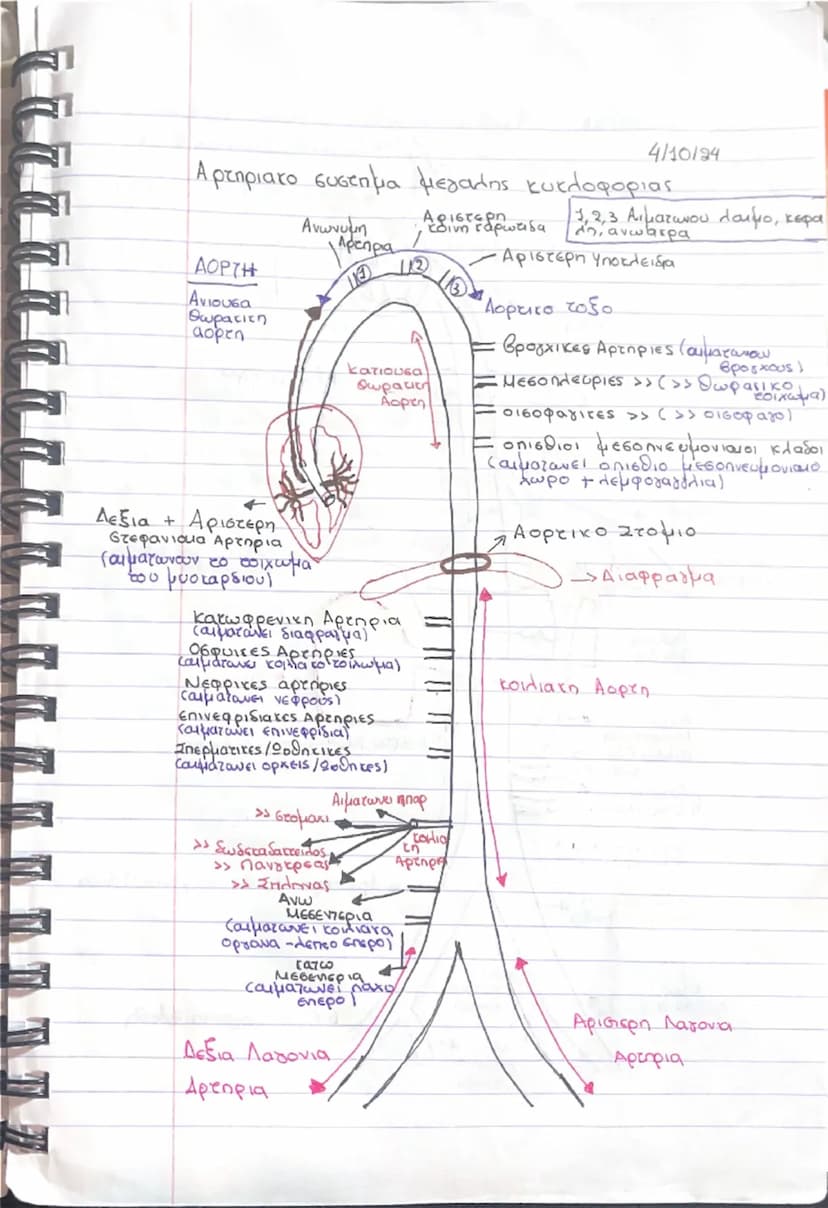 4/10/24
Αρτηριακο συστημα μεγαλης κυκλοφοριας
1,2,3 Αιματωνου λαιμο, κεφα
λη, ανω ακρα
Ανωνυμη
Αρτηρια
Αριστερη
κοινη καρωτιδα
Αριστερη Υποκλειδα
ΑΟΡΤΗ
1
2
3
Ανιουσα
Θωρακικη
αορτη
Αορτικο τοξο
Κατιουσα
Θωρακικη
Αορτη
Βρογχικες Αρτηριες (αιματωνουν
βρογχους)
Μεσοπλευριες >> (>> Θωρακικο
τοιχωμα)
οισοφαγικες >> (>> οισοφαγο)
οπισθιοι μεσοπνευμονιαιοι κλαδοι
(αιματωνει οπισθιο μεσοπνευμονιαιο
χωρο + λεμφαγαγγλια)
Δεξια + Αριστερη
Στεφανιαια Αρτηρια
(αιματωνουν το τοιχωμα
του μυοκαρδιου)
Αορτικο Στομιο
Διαφραγμα
Κατωφρενικη Αρτηρια
(αιματωνει διαφραγμα)
Οσφυικες Αρτηριες
(αιματωνει κοιλιακο τοιχωμα)
Νεφρικες αρτηριες
(αιματωνει νεφρους)
Επινεφριδιακες Αρτηριες
(αιματωνει επινεφριδια)
Σπερματικες/Ωοθηκικες
(αιματωνει ορχεις/Ωοθηκες)
κοιλιακη Αορτη
Αιματωνει ηπαρ
>> Στομαχι
>> Δωδεκαδακτυλος
>> Παγκρεας
>> Σπληνας
κοιλια
κη
Αρτηρια
Ανω
Μεσεντερια
(αιματωνει κοιλιακα
οργανα - λεπτο εντερο)
κατω
Μεσεντερια
(αιματωνει παχυ
εντερο)
Δεξια Λαγονια
Αρτηρια
Αριστερη Λαγονια
Αρτηρια